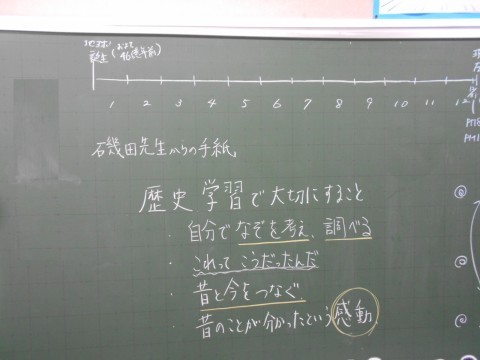 地球
誕生 (およそ46億年前)
1 2 3 4 5 6 7 8 9 10 11 12
石磯田先生からの手紙
歴史学習で大切にすること
・自分でなぞを考え、調べる
・これってこうだったんだ
・昔と今をつなぐ。
・昔のことが分かったという感動